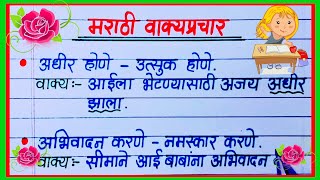 मराठी वाक्यप्रचार
अधीर होणे - उत्सुक होणे.
वाक्य:- आईला भेटण्यासाठी अजय अधीर
झाला.
अभिवादन करणे - नमस्कार करणे.
वाक्य:- सीमाने आई बाबांना अभिवादन